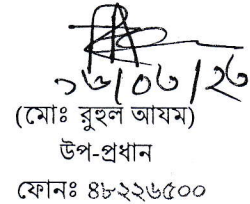 ১৬/০৬/২৬
(মোঃ রুহুল আযম)
উপ-প্রধান
ফোনঃ ৪৮২২৬৫০০